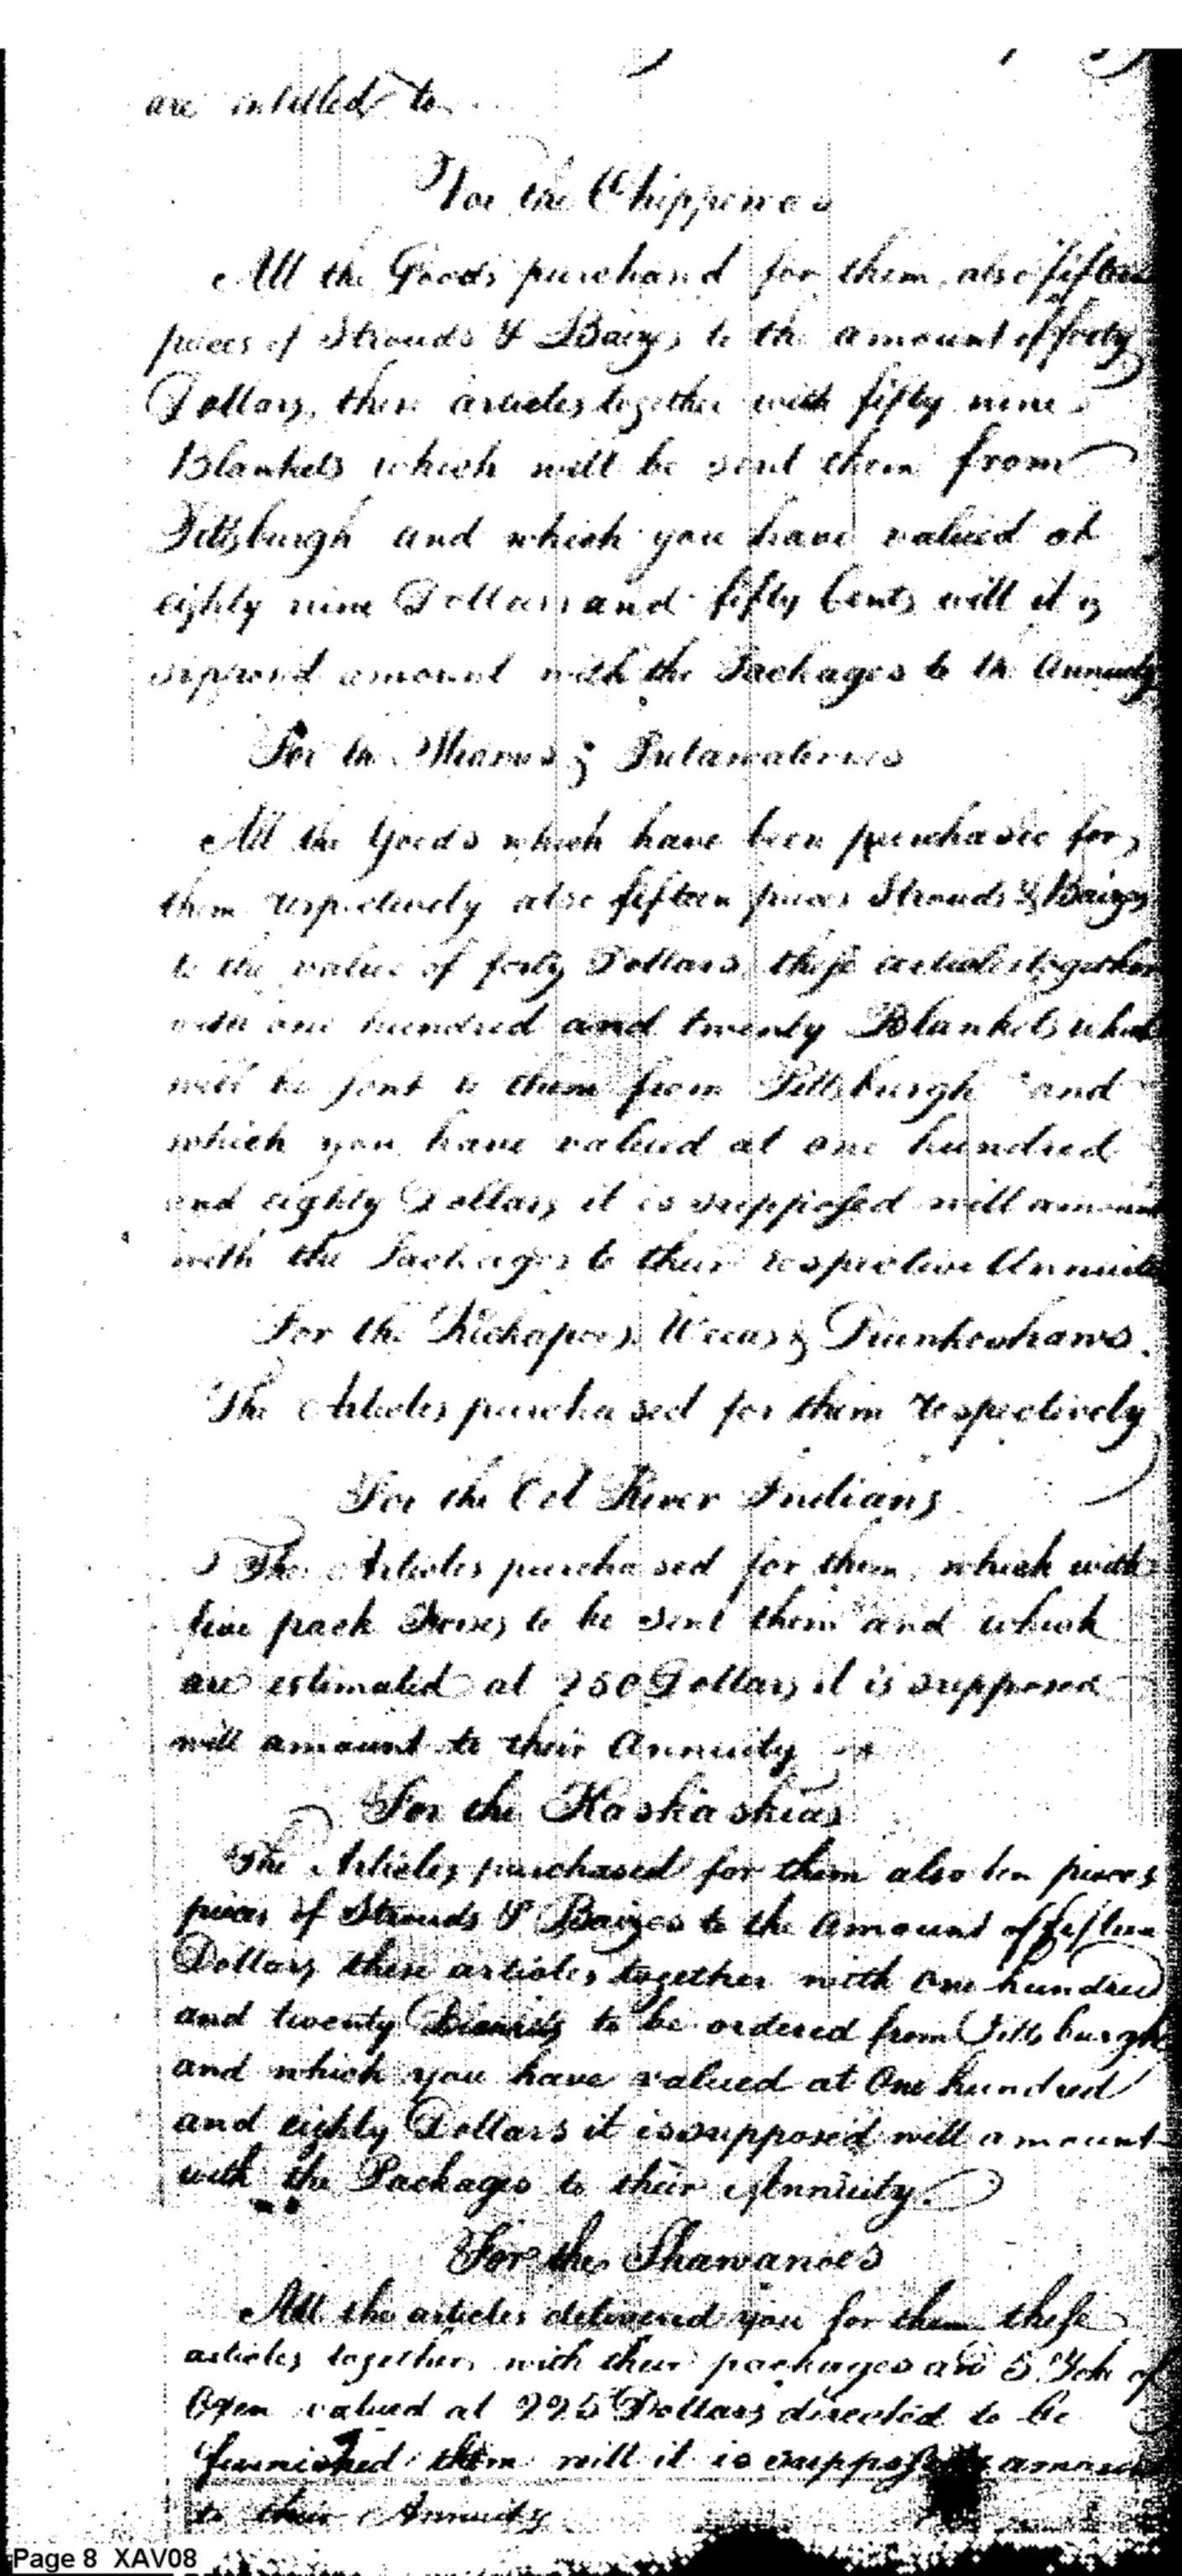 are intitled to
For the Chippewas
All the Goods purchased for them, also fifteen
pieces of Strouds & Baizes to the amount of forty
Dollars, these articles together with fifty nine
Blankets which will be sent them from
Pittsburgh and which you have valued at
eighty nine Dollars and fifty Cents will it is
supposed amount with the Packages to the Annuity
For the Miamis & Putawatimies
All the Goods which have been purchased for
them respectively also fifteen pieces Strouds & Baizes
to the value of forty Dollars, these articles together
with one hundred and twenty Blankets which
will be sent to them from Pittsburgh and
which you have valued at one hundred
and eighty Dollars it is supposed will amount
with the Packages to their respective Annuities
For the Kickapoos, Weeas &
The Articles purchased for them respectively
For the Eel River Indians
The Articles purchased for them, which with
five pack Horses to be sent them and which
are estimated at 250 Dollars it is supposed
will amount to their Annuity
For the Kaskaskias
The Articles purchased for them also ten pieces
pieces of Strouds & Baizes to the amount of fifteen
Dollars these articles together with One hundred
and twenty to be ordered from Pittsburgh
and which you have valued at One hundred
and eighty Dollars it is supposed will amount
with the Packages to their Annuity.
For the Shawanoes
All the articles delivered you for them these
articles together with their packages and 5 Yoke of
Oxen valued at 225 Dollars directed to be
furnished them will it is supposed amount
to their Annuity
Page 8 XAV08